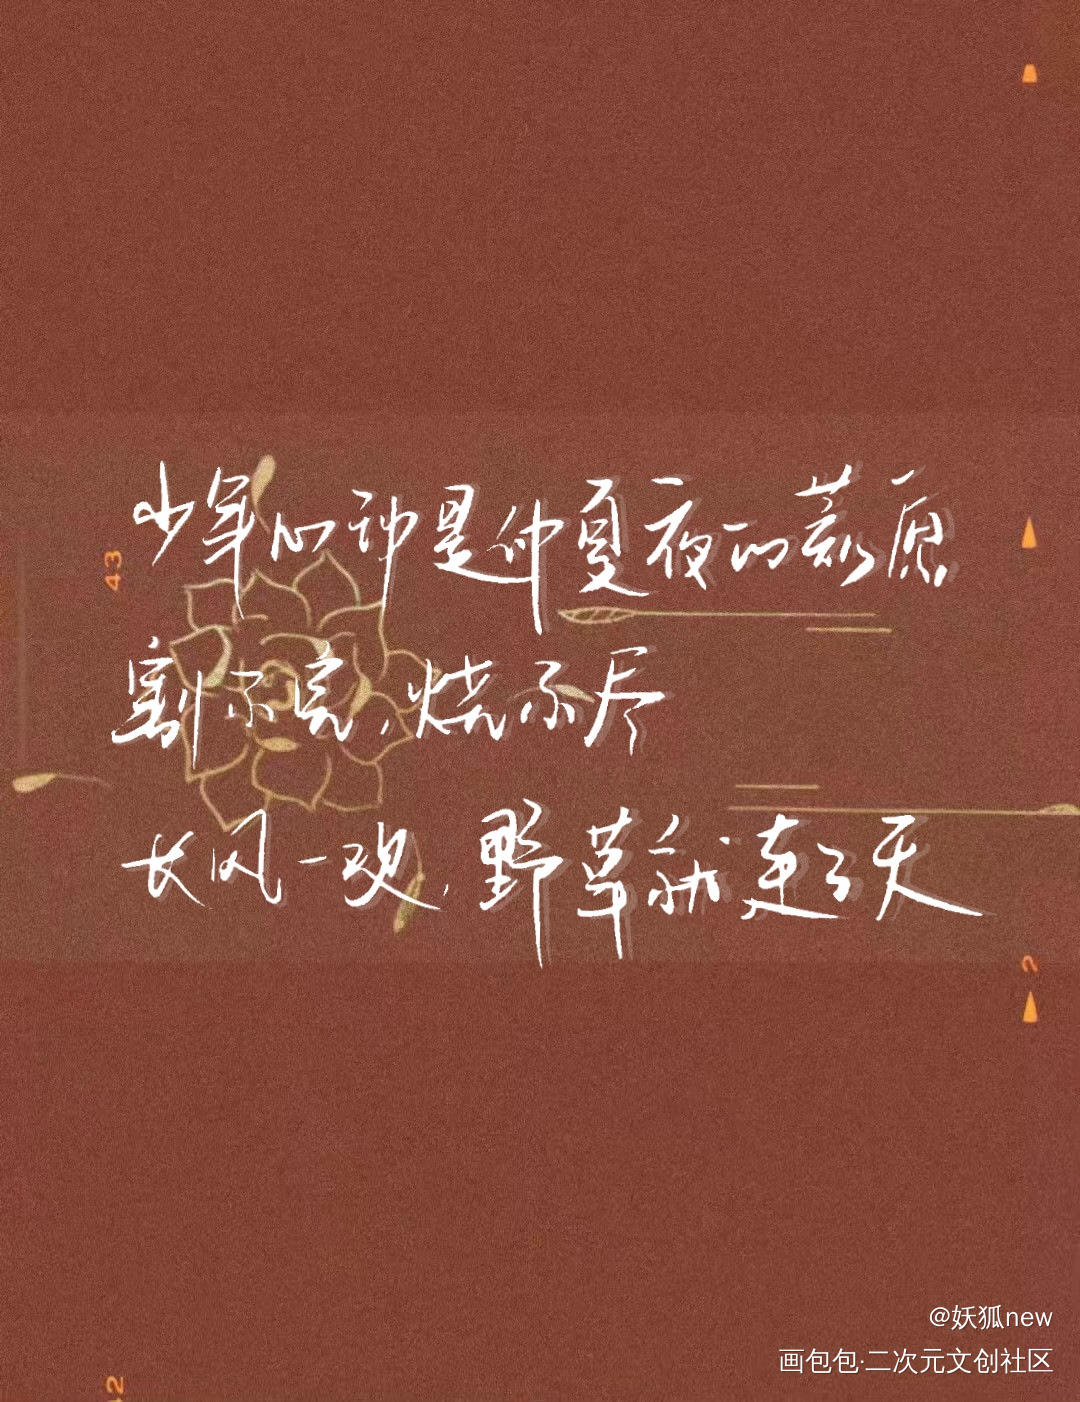 少年心动是仲夏夜的荒原
43
割不完,烧不尽
长风一吹,野草就连了天
2
@妖狐new
画包包·二次元文创社区